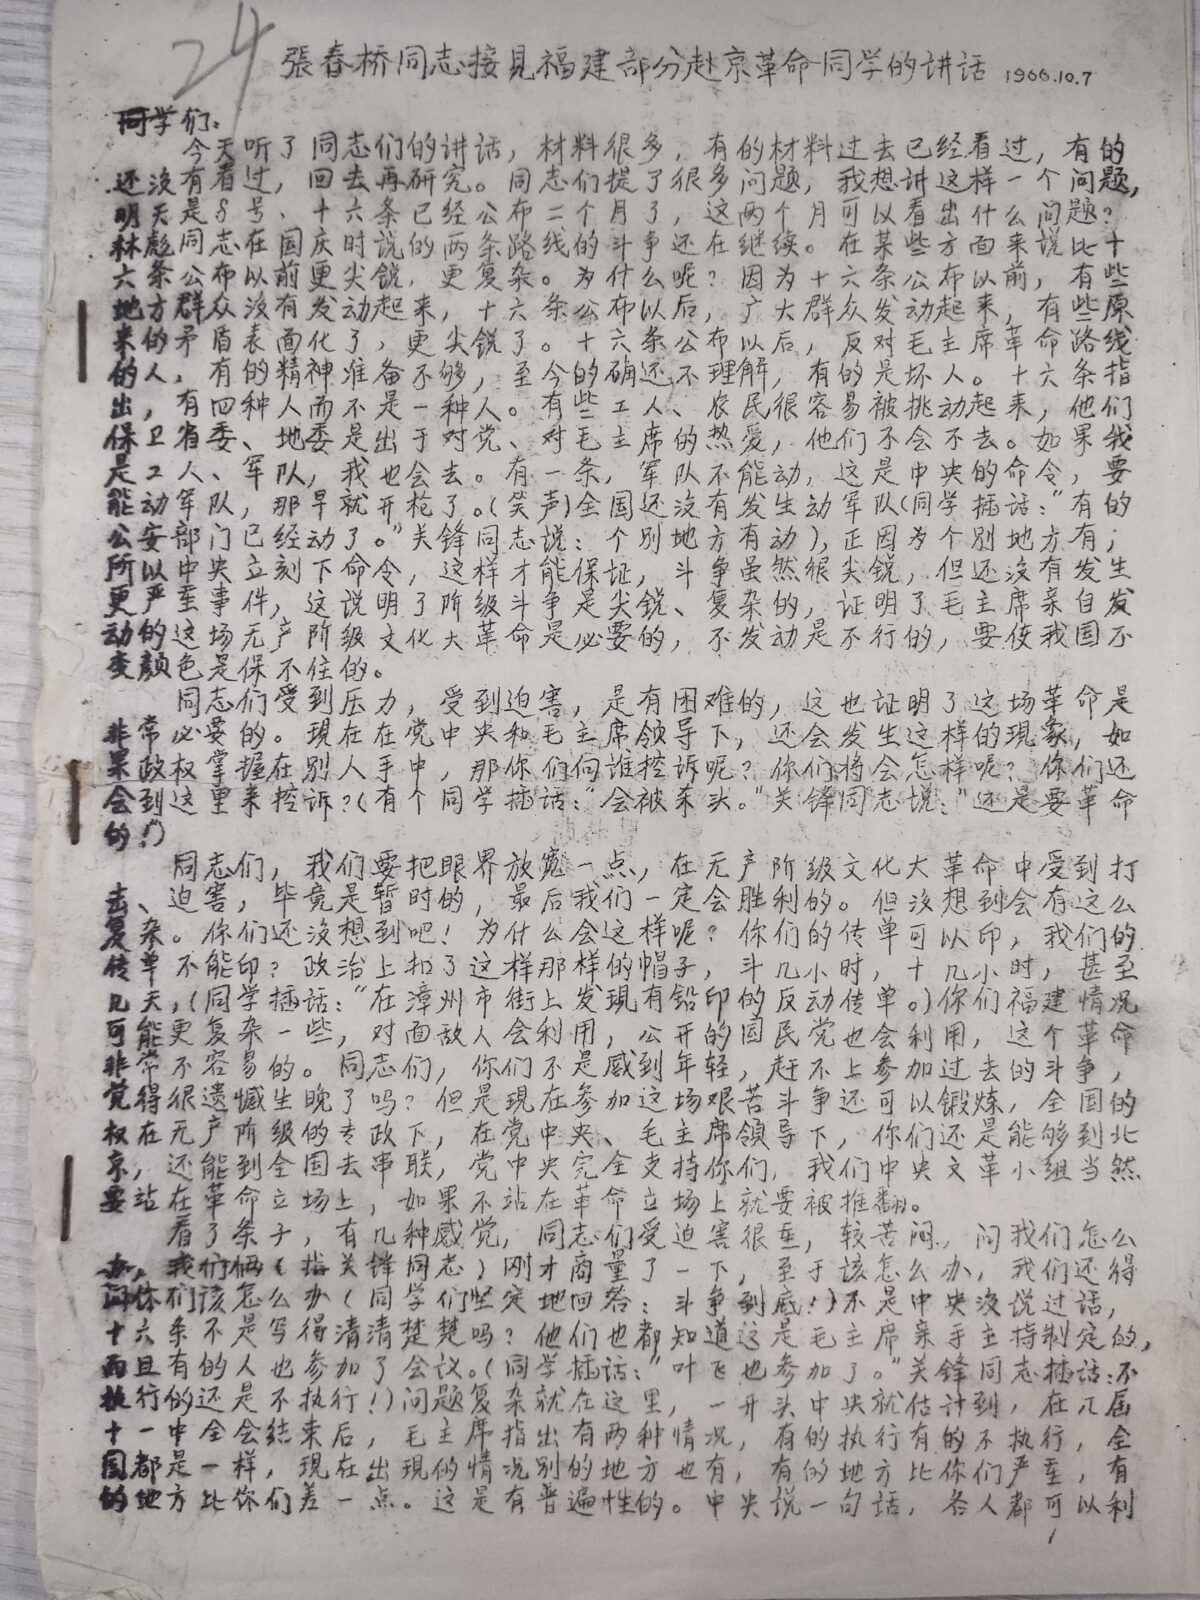 24
張春桥同志接見福建部分赴京革命同学的讲话 1966.10.7
同学们：
今天听了同志们的讲话，材料很多，有的材料过去已经看过，有的
还没有看过，回去再研究。同志们提了很多问题，我想讲这样一个问题，
明天是8号、十六条已经公布二个月了，这两个月可以看出什么问题？
林彪同志在国庆时说的两条路线的斗争还在继续。在某些方面来说比十
六条公布以前更尖锐，更复杂。为什么呢？因为十六条公布以前，有些
地方群众没有发动起来，十六条公布以后，广大群众发动起来，有些原
来的矛盾表面化了，更尖锐了。十六条公布以后，反对毛主席革命路线
的人，有的精神准备不够，至今的确还不理解，有的是坏人。十六条指
出，有四种人而不是一种人。有些工人、农民很容易被挑动起来，他们
保卫省委、地委是出于对党、对毛主席的热爱，他们不会不去。如果我
是工人、军队，我也会去。有一条，军队不能动，这是中央的命令，要
能动军队，那早就开枪了。(笑声)全国还没有发生动军队(同学插话："有的
公安部门已经动了。"关锋同志说：个别地方有动)，正因为个别地方有；
所以中央立刻下命令，这样才能保证，斗争虽然很尖锐，但还没有发生
更严重事件，这说明了阶级斗争是尖锐、复杂的，证明了毛主席亲自发
动的这场无产阶级文化大革命是必要的，不发动是不行的，要使我国不
变颜色是保不住的。
同志们受到压力，受到迫害，是有困难的，这也证明了这场革命是
非常必要的。現在在党中央和毛主席領导下，还会发生这样的現象，如
果政权掌握在别人手中，那你们向谁控诉呢？你们将会怎样呢？你们还
会到这里来控诉？(有个同学插话："会被杀头。"关锋同志说："还是要革命
的！")
同志们，我们要把眼界放宽一点，在无产阶级文化大革命中受到打
击、迫害，毕竟是暂时的，最后我们一定会胜利的。但没想到会有这么
复杂。你们还没想到吧！为什么会这样呢？你们的传单可以印，我们的
传单不能印？政治上扣了这样那样的帽子，斗几小时，十几小时，甚至
几天，(同学插话："在漳州市街上发現有铅印的反动传单。)你们福建情况
可能更复杂一些，对面敌人会利用，公开的国民党也会利用，这个革命
非常不容易的。同志们，你们不是感到年轻，赶不上参加过去的斗争，
觉得很遗憾生晚了吗？但是現在参加这场艰苦斗争还可以锻炼，全国的
权在无产阶级的专政下，在党中央、毛主席領导下，你们还是能够到北
京，还能到全国去串联，党中央完全支持你们，我们中央文革小组当然
要站在革命立场上，如果不站在革命立场上就要被推翻。
看了条子，有几种感觉，同志们受迫害很重，较苦闷，问我们怎么
办，我们俩(指关锋同志)刚才商量了一下，至于该怎么办，我们还得
问你们该怎么办(同学们坚定地回答：斗争到底！)不是中央没说过话，
十六条不是写得清清楚楚吗？他们也都知道这是毛主席亲手主持制定的，
而且有的人也参加了会议。(同学插话："叶飞也参加了。"关锋同志插话：不
执行的还是不执行！)问题复杂就在这里，一开头中央就估计到，在八届
十一中全会结束后，毛主席指出有两种情况，有的执行有的不执行，全
国都是一样，現在出現的情况别的地方也有，有的地方比你们严重，有
的地方比你们差一点。这是有普遍性的。中央说一句话，各人都可以利
1